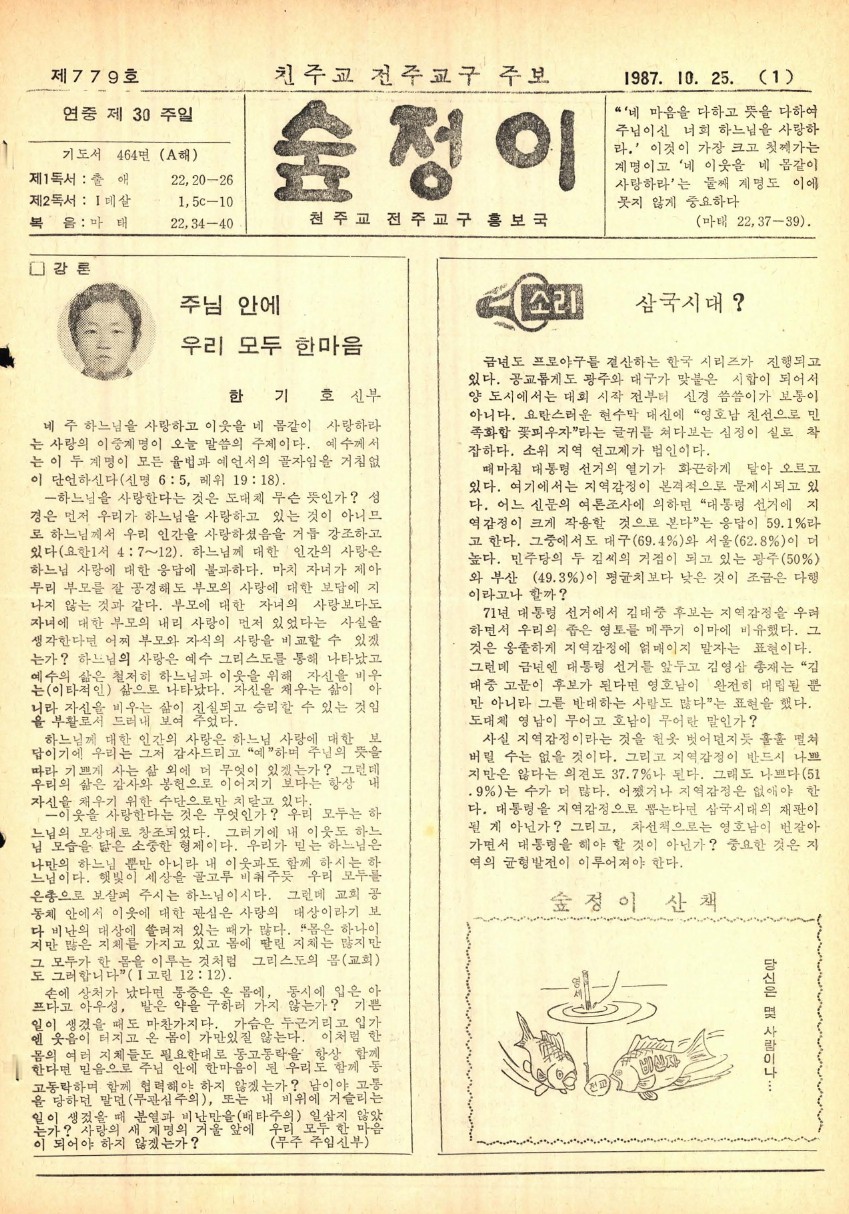 제779호
천주교 전주교구 주보
1987. 10. 25. (1)
연중 제 30 주일
기도서 464면 (A해)
제1독서 : 출 애 22,20—26
제2독서 : I 데살 1,5c—10
복 음 : 마 태 22,34—40
숲정이
천주교 전주교구 홍보국
“‘네 마음을 다하고 뜻을 다하여
주님이신 너희 하느님을 사랑하
라.’ 이것이 가장 크고 첫째가는
계명이고 ‘네 이웃을 네 몸같이
사랑하라’는 둘째 계명도 이에
못지 않게 중요하다
(마태 22,37—39).
□ 강 론
주님 안에
우리 모두 한마음
한 기 호 신부
네 주 하느님을 사랑하고 이웃을 네 몸같이 사랑하라
는 사랑의 이중계명이 오늘 말씀의 주제이다. 예수께서
는 이 두 계명이 모든 율법과 예언서의 골자임을 거침없
이 단언하신다(신명 6 : 5, 레위 19 : 18).
—하느님을 사랑한다는 것은 도대체 무슨 뜻인가? 성
경은 먼저 우리가 하느님을 사랑하고 있는 것이 아니므
로 하느님께서 우리 인간을 사랑하셨음을 거듭 강조하고
있다(요한1서 4 : 7～12). 하느님께 대한 인간의 사랑은
하느님 사랑에 대한 응답에 불과하다. 마치 자녀가 제아
무리 부모를 잘 공경해도 부모의 사랑에 대한 보답에 지
나지 않는 것과 같다. 부모에 대한 자녀의 사랑보다도
자녀에 대한 부모의 내리 사랑이 먼저 있었다는 사실을
생각한다면 어찌 부모와 자식의 사랑을 비교할 수 있겠
는가? 하느님의 사랑은 예수 그리스도를 통해 나타났고
예수의 삶은 철저히 하느님과 이웃을 위해 자신을 비우
는(이타적인) 삶으로 나타났다. 자신을 채우는 삶이 아
니라 자신을 비우는 삶이 진실되고 승리할 수 있는 것임
을 부활로서 드러내 보여 주었다.
하느님께 대한 인간의 사랑은 하느님 사랑에 대한 보
답이기에 우리는 그저 감사드리고 “예”하며 주님의 뜻을
따라 기쁘게 사는 삶 외에 더 무엇이 있겠는가? 그런데
우리의 삶은 감사와 봉헌으로 이어지기 보다는 항상 내
자신을 채우기 위한 수단으로만 치닫고 있다.
—이웃을 사랑한다는 것은 무엇인가? 우리 모두는 하
느님의 모상대로 창조되었다. 그러기에 내 이웃도 하느
님 모습을 닮은 소중한 형제이다. 우리가 믿는 하느님은
나만의 하느님 뿐만 아니라 내 이웃과도 함께 하시는 하
느님이다. 햇빛이 세상을 골고루 비춰주듯 우리 모두를
은총으로 보살펴 주시는 하느님이시다. 그런데 교회 공
동체 안에서 이웃에 대한 관심은 사랑의 대상이라기 보
다 비난의 대상에 쏠려져 있는 때가 많다. “몸은 하나이
지만 많은 지체를 가지고 있고 몸에 딸린 지체는 많지만
그 모두가 한 몸을 이루는 것처럼 그리스도의 몸(교회)
도 그러합니다”(I 고린 12 : 12).
손에 상처가 났다면 통증은 온 몸에, 동시에 입은 아
프다고 아우성, 발은 약을 구하러 가지 않는가? 기쁜
일이 생겼을 때도 마찬가지다. 가슴은 두근거리고 입가
엔 웃음이 터지고 온 몸이 가만있질 않는다. 이처럼 한
몸의 여러 지체들도 필요한대로 동고동락을 항상 함께
한다면 믿음으로 주님 안에 한마음이 된 우리도 함께 동
고동락하며 함께 협력해야 하지 않겠는가? 남이야 고통
을 당하던 말던(무관심주의), 또는 내 비위에 거슬리는
일이 생겼을 때 분열과 비난만을(배타주의) 일삼지 않았
는가? 사랑의 새 계명의 거울 앞에 우리 모두 한 마음
이 되어야 하지 않겠는가? (무주 주임신부)
소리
삼국시대?
금년도 프로야구를 결산하는 한국 시리즈가 진행되고
있다. 공교롭게도 광주와 대구가 맞붙은 시합이 되어서
양 도시에서는 대회 시작 전부터 신경 씀씀이가 보통이
아니다. 요란스러운 현수막 대신에 “영호남 친선으로 민
족화합 꽃피우자”라는 글귀를 쳐다보는 심정이 실로 착
잡하다. 소위 지역 연고제가 범인이다.
때마침 대통령 선거의 열기가 화끈하게 달아 오르고
있다. 여기에서는 지역감정이 본격적으로 문제시되고 있
다. 어느 신문의 여론조사에 의하면 “대통령 선거에 지
역감정이 크게 작용할 것으로 본다”는 응답이 59.1%라
고 한다. 그중에서도 대구(69.4%)와 서울(62.8%)이 더
높다. 민주당의 두 김씨의 거점이 되고 있는 광주(50%)
와 부산 (49.3%)이 평균치보다 낮은 것이 조금은 다행
이라고나 할까?
71년 대통령 선거에서 김대중 후보는 지역감정을 우려
하면서 우리의 좁은 영토를 메뚜기 이마에 비유했다. 그
것은 옹졸하게 지역감정에 얽매이지 말자는 표현이다.
그런데 금년엔 대통령 선거를 앞두고 김영삼 총재는 “김
대중 고문이 후보가 된다면 영호남이 완전히 대립될 뿐
만 아니라 그를 반대하는 사람도 많다”는 표현을 했다.
도대체 영남이 무어고 호남이 무어란 말인가?
사실 지역감정이라는 것을 헌옷 벗어던지듯 훌훌 떨쳐
버릴 수는 없을 것이다. 그리고 지역감정이 반드시 나쁘
지만은 않다는 의견도 37.7%나 된다. 그래도 나쁘다(51
.9%)는 수가 더 많다. 어쨌거나 지역감정은 없애야 한
다. 대통령을 지역감정으로 뽑는다면 삼국시대의 재판이
될 게 아닌가? 그리고, 차선책으로는 영호남이 번갈아
가면서 대통령을 해야 할 것이 아닌가? 중요한 것은 지
역의 균형발전이 이루어져야 한다.
숲정이 산책
당신은 몇 사람이나…
영세
전교
비신자